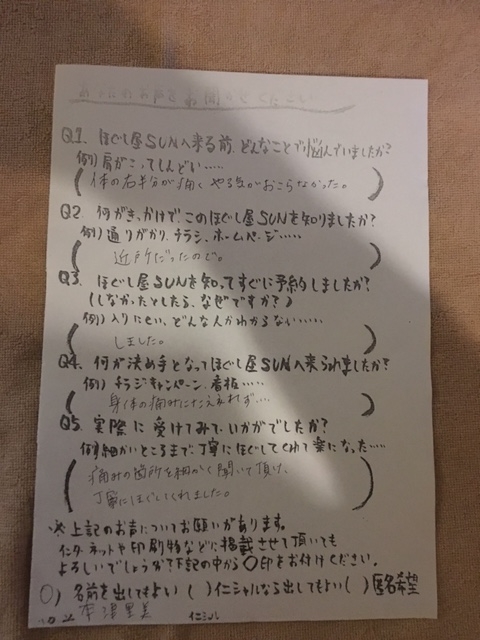 お聞かせください
Q1. ほぐし屋SUNへ来る前、どんなことで悩んでいましたか?
例) 肩がこってしんどい……
(体の右半分が痛く やる気がおこらなかった。)
Q2. 何がきっかけで、このほぐし屋SUNを知りましたか?
例) 通りがかり、チラシ、ホームページ……
(近所だったので。)
Q3. ほぐし屋SUNを知ってすぐに予約しましたか?
(しなかったとしたら、なぜですか?)
例) 入りにくい、どんな人かわからない……
(しました。)
Q4. 何が決め手となってほぐし屋SUNへ来られましたか?
例) チラシキャンペーン、看板……
(身体の痛みにたえきれず…)
Q5. 実際に受けてみて、いかがでしたか?
例) 細かいところまで丁寧にほぐしてくれて楽になった……
(痛みの箇所を細かく聞いて頂け、
丁寧にほぐしてくれました。)
※上記のお声についてお願いがあります。
インターネットや印刷物などに掲載させて頂いても
よろしいでしょうか?下記の中から○印をお付けください。
(○) 名前を出してもよい ( ) イニシャルなら出してもよい ( ) 匿名希望
イニシャル